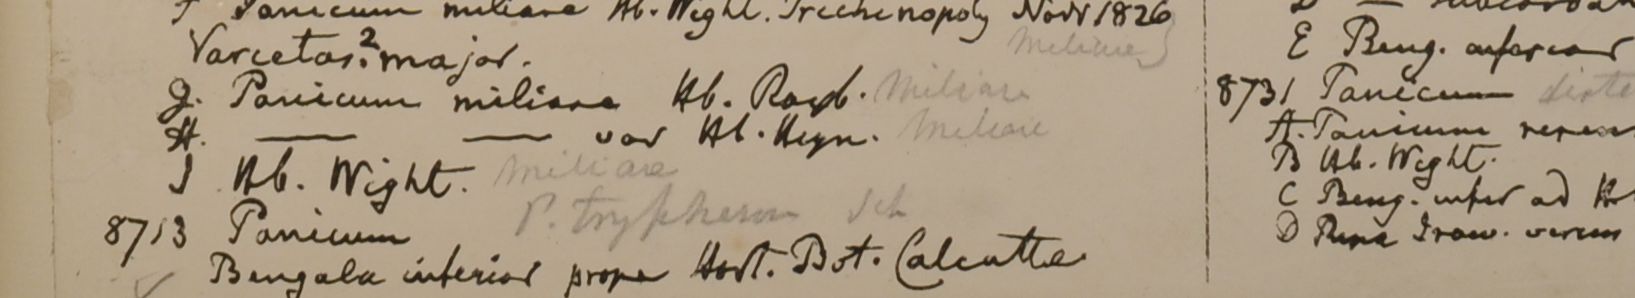 F Panicum miliare Hb. Wight. Trichinopoly Novr 1826
miliare
Varietas. 2 major.
G. Panicum miliare Hb. Roxb. miliare
H. — — var Hb. Heyn. miliare
I Hb. Wight. miliare
8713 Panicum P. trypheron Sch
Bengala inferior prope Hort. Bot. Calcutta
E Beng. inferior
8731 Panicum
A. Panicum repens
B Hb. Wight.
C Beng. infer ad
D Ripa Iraw. versus